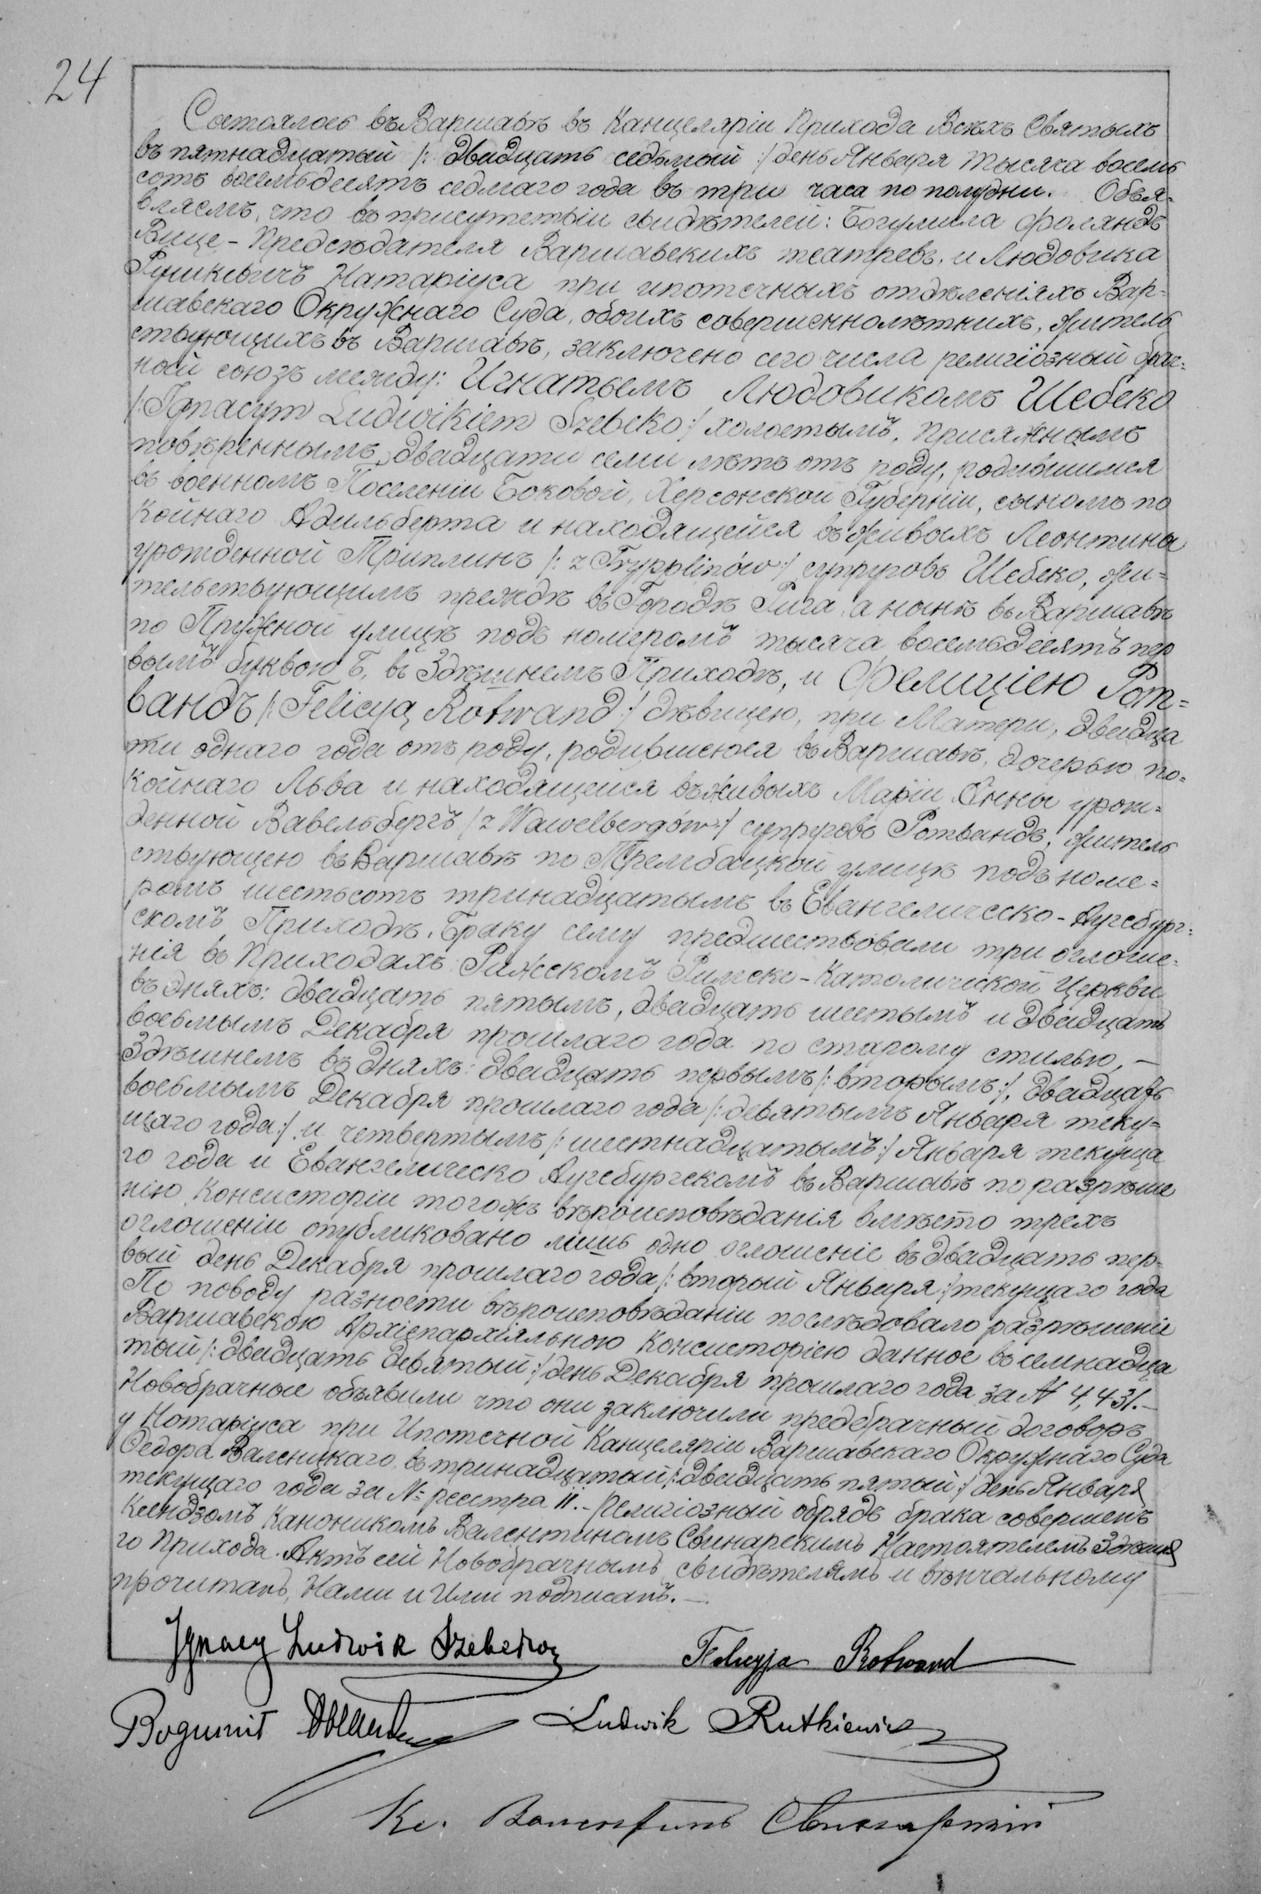 24
Состоялось въ Варшавѣ въ Канцеляріи Прихода Всѣхъ Святыхъ
въ пятнадцатый /: двадцать седьмой :/ день Января тысяча восемь
сотъ восемьдесятъ седмаго года въ три часа по полудни. Объя-
вляемъ, что въ присутствіи свидѣтелей: Богумила Фолянда
Вице-Предсѣдателя Варшавскихъ театровъ, и Людовика
Руткевичъ Натаріуса при ипотечныхъ отдѣленіяхъ Вар-
шавскаго Окружнаго Суда, обоихъ совершеннолѣтнихъ, житель
ствующихъ въ Варшавѣ, заключено сего числа религіозный брач-
ной союзъ между: Игнатьемъ Людовикомъ Шебеко
/: Ignacym Ludwikiem Szebeko :/ холостымъ, Присяжнымъ
повѣреннымъ, двадцати семи лѣтъ отъ роду, родившимся
въ военномъ Поселеніи Боковой, Херсонской Губерніи, сыномъ по
койнаго Адильберта и находящейся въ живыхъ Леонтины
урожденной Триплинъ /: z Tripplinów :/ супруговъ Шебеко, жи-
тельствующимъ прежде въ Городѣ Рига, а нынѣ въ Варшавѣ
по Пружной улицѣ подъ номеромъ тысяча восемьдесятъ пер
вымъ буквою Б, въ Здѣшнемъ Приходѣ, и Фелиціею Рот-
вандъ /: Felicyą Rotwand :/ дѣвицею, при Матери, двадца
ти однаго года отъ роду, родившеюся въ Варшавѣ, дочерью по-
койнаго Льва и находящейся въ живыхъ Маріи Анны урож-
денной Вавельбергъ /: z Wawelbergów :/ супруговъ Ротвандъ, житель
ствующею въ Варшавѣ по Трембацкой улицѣ подъ номе-
ромъ шестьсотъ тринадцатымъ въ Евангелическо-Аугсбург-
скомъ Приходѣ. Браку сему предшествовали три оглоше-
нія въ Приходахъ: Рижскомъ Римско-Католической Церкви
въ дняхъ: двадцать пятымъ, двадцать шестымъ и двадцать
восьмымъ Декабря прошлаго года по старому стилю, —
Здѣшнемъ въ дняхъ: двадцать первымъ /: вторымъ :/, двадцать
восьмымъ Декабря прошлаго года /: девятымъ Января теку-
щаго года :/ и четвертымъ /: шестнадцатымъ :/ Января текуща
го года и Евангелическо Аугсбургскомъ въ Варшавѣ по разрѣше
нію Консисторіи тогожъ вѣроисповѣданія вмѣсто трехъ
оглошеніи опубликовано лишь одно оглошеніе въ двадцать пер-
вый день Декабря прошлаго года /: вторый Января :/ текущаго года
По поводу разности вѣроисповѣданіи послѣдовало разрѣшеніе
Варшавскою Архіепархіяльною Консисторіею данное въ семнадца
тый /: двадцать девятый :/ день Декабря прошлаго года за № 4,431.—
Новобрачные объявили что они заключили предбрачный договоръ
у Нотаріуса при Ипотечной Канцеляріи Варшавскаго Окружнаго Суда
Федора Валицкаго въ тринадцатый /: двадцать пятый :/ день Января
текущаго года за №: реестра 11.— Религіозный обрядъ брака совершенъ
Ксендзомъ Каноникомъ Валентиномъ Свинарскимъ Настоятелемъ Здѣшня
го Прихода. Актъ сей Новобрачнымъ, свидѣтелямъ и вѣнчальному
прочитанъ, Нами и Ими подписанъ. —
Ignacy Ludwik Szebeko
Felicyja Rotwand
Bogumił
Ludwik Rutkiewicz
Кс. Валентинъ Свинарскій